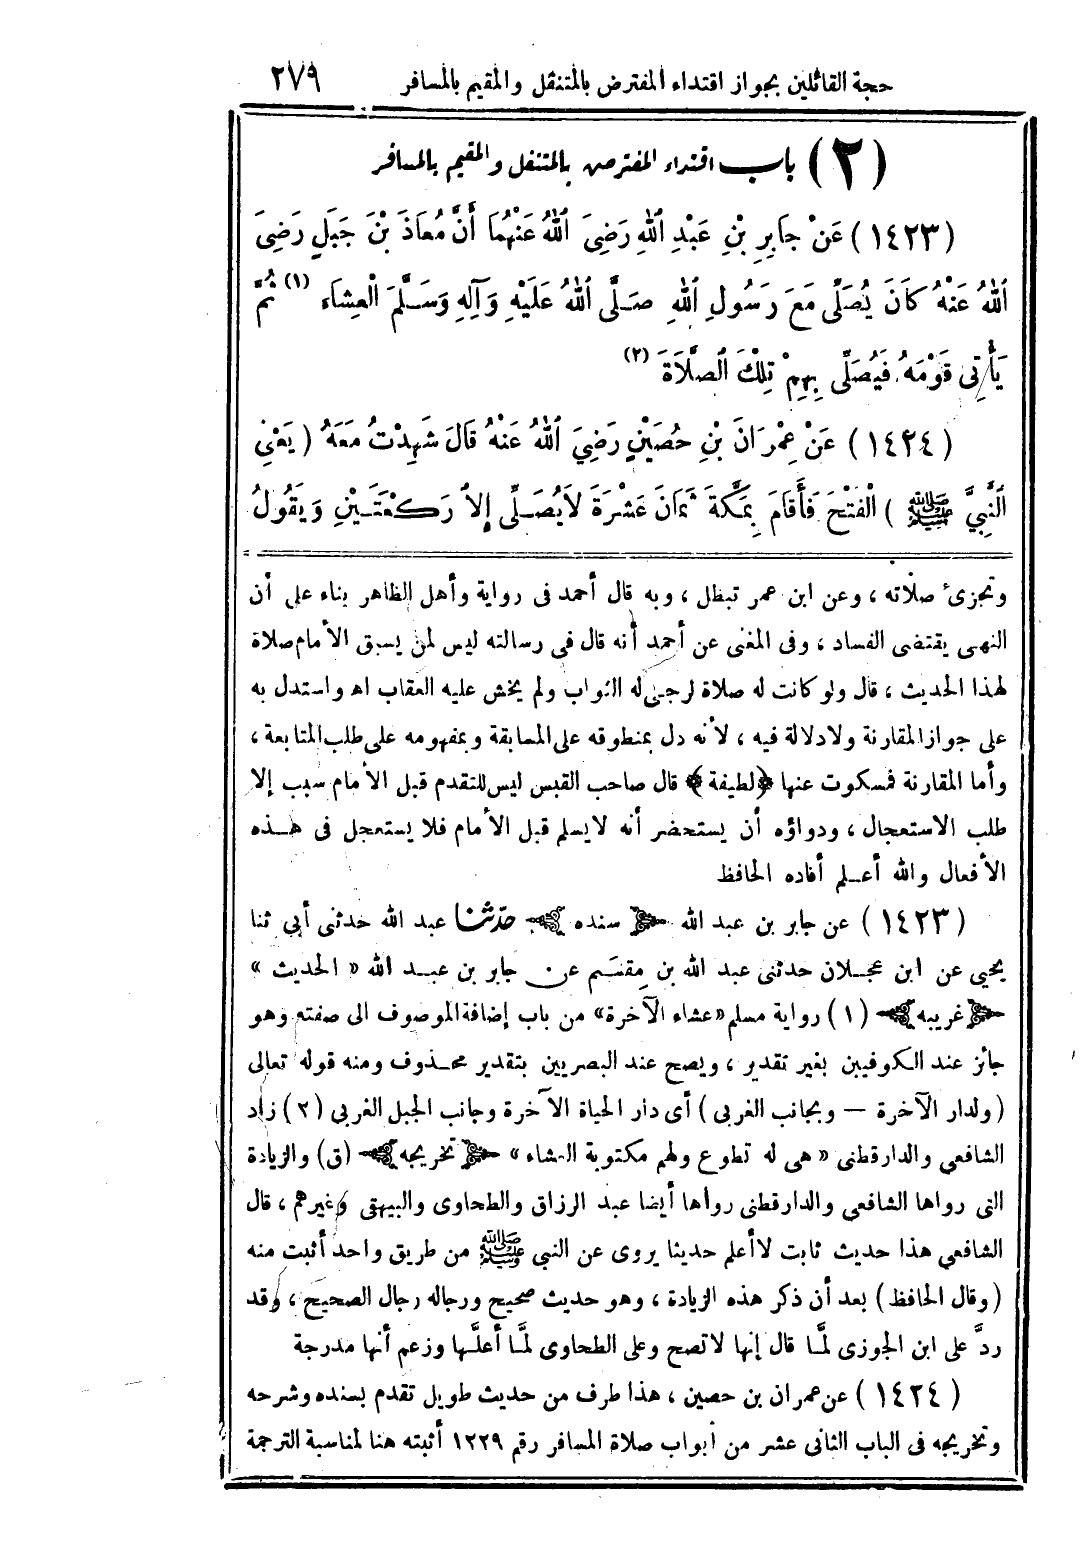 حجة القائلين بجواز اقتداء المفترض بالمتنفل والمقيم بالمسافر ٢٧٩
(٢) باب اقتداء المفترض بالمتنفل والمقيم بالمسافر
(١٤٢٣) عَنْ جَابِرِ بْنِ عَبْدِ اللهِ رَضِيَ اللهُ عَنْهُمَا أَنَّ مُعَاذَ بْنَ جَبَلٍ رَضِيَ
اللهُ عَنْهُ كَانَ يُصَلِّى مَعَ رَسُولِ اللهِ صَلَّى اللهُ عَلَيْهِ وَآلِهِ وَسَلَّمَ الْعِشَاءَ (١) ثُمَّ
يَأْتِى قَوْمَهُ فَيُصَلِّى بِهِمْ تِلْكَ الصَّلَاةَ (٢)
(١٤٢٤) عَنْ عِمْرَانَ بْنِ حُصَيْنٍ رَضِيَ اللهُ عَنْهُ قَالَ شَهِدْتُ مَعَهُ (يَعْنِي
النَّبِيَّ ﷺ) الْفَتْحَ فَأَقَامَ بِمَكَّةَ ثَمَانَ عَشْرَةَ لَا يُصَلِّى إِلَّا رَكْعَتَيْنِ وَيَقُولُ
وتجزىء صلاته ، وعن ابن عمر تبطل ، وبه قال أحمد فى رواية وأهل الظاهر بناء على أن
النهى يقتضى الفساد ، وفى المغنى عن أحمد أنه قال فى رسالته ليس لمن يسبق الأمام صلاة
لهذا الحديث ، قال ولو كانت له صلاة لرجى له الثواب ولم يخش عليه العقاب اه واستدل به
على جواز المقارنة ولا دلالة فيه ، لأنه دل بمنطوقه على المسابقة وبمفهومه على طلب المتابعة ،
وأما المقارنة فمسكوت عنها ﴿لطيفة﴾ قال صاحب القبس ليس للتقدم قبل الأمام سبب إلا
طلب الاستعجال ، ودواؤه أن يستحضر أنه لا يسلم قبل الأمام فلا يستعجل فى هذه
الأفعال والله أعلم أفاده الحافظ
(١٤٢٣) عن جابر بن عبد الله ﴿سنده﴾ حدّثنا عبد الله حدثنى أبي ثنا
يحيي عن ابن عجلان حدثنى عبد الله بن مِقسَم عن جابر بن عبد الله « الحديث »
﴿غريبه﴾ (١) رواية مسلم «عشاء الآخرة» من باب إضافة الموصوف الى صفته وهو
جائز عند الكوفيين بغير تقدير ، ويصح عند البصريين بتقدير محذوف ومنه قوله تعالى
(ولدار الآخرة — وبجانب الغربى) أى دار الحياة الآخرة وجانب الجبل الغربى (٢) زاد
الشافعي والدارقطنى « هى له تطوع ولهم مكتوبة العشاء » ﴿تخريجه﴾ (ق) والزيادة
التى رواها الشافعي والدارقطنى رواها أيضا عبد الرزاق والطحاوى والبيهقى وغيرهم ، قال
الشافعي هذا حديث ثابت لا أعلم حديثا يروى عن النبي ﷺ من طريق واحد أثبت منه
(وقال الحافظ) بعد أن ذكر هذه الزيادة ، وهو حديث صحيح ورجاله رجال الصحيح ، وقد
ردَّ على ابن الجوزى لمَّا قال إنها لا تصح وعلى الطحاوى لمَّا أعلَّها وزعم أنها مدرجة
(١٤٢٤) عن عمران بن حصين ، هذا طرف من حديث طويل تقدم بسنده وشرحه
وتخريجه فى الباب الثانى عشر من أبواب صلاة المسافر رقم ١٢٢٩ أثبته هنا لمناسبة الترجمة